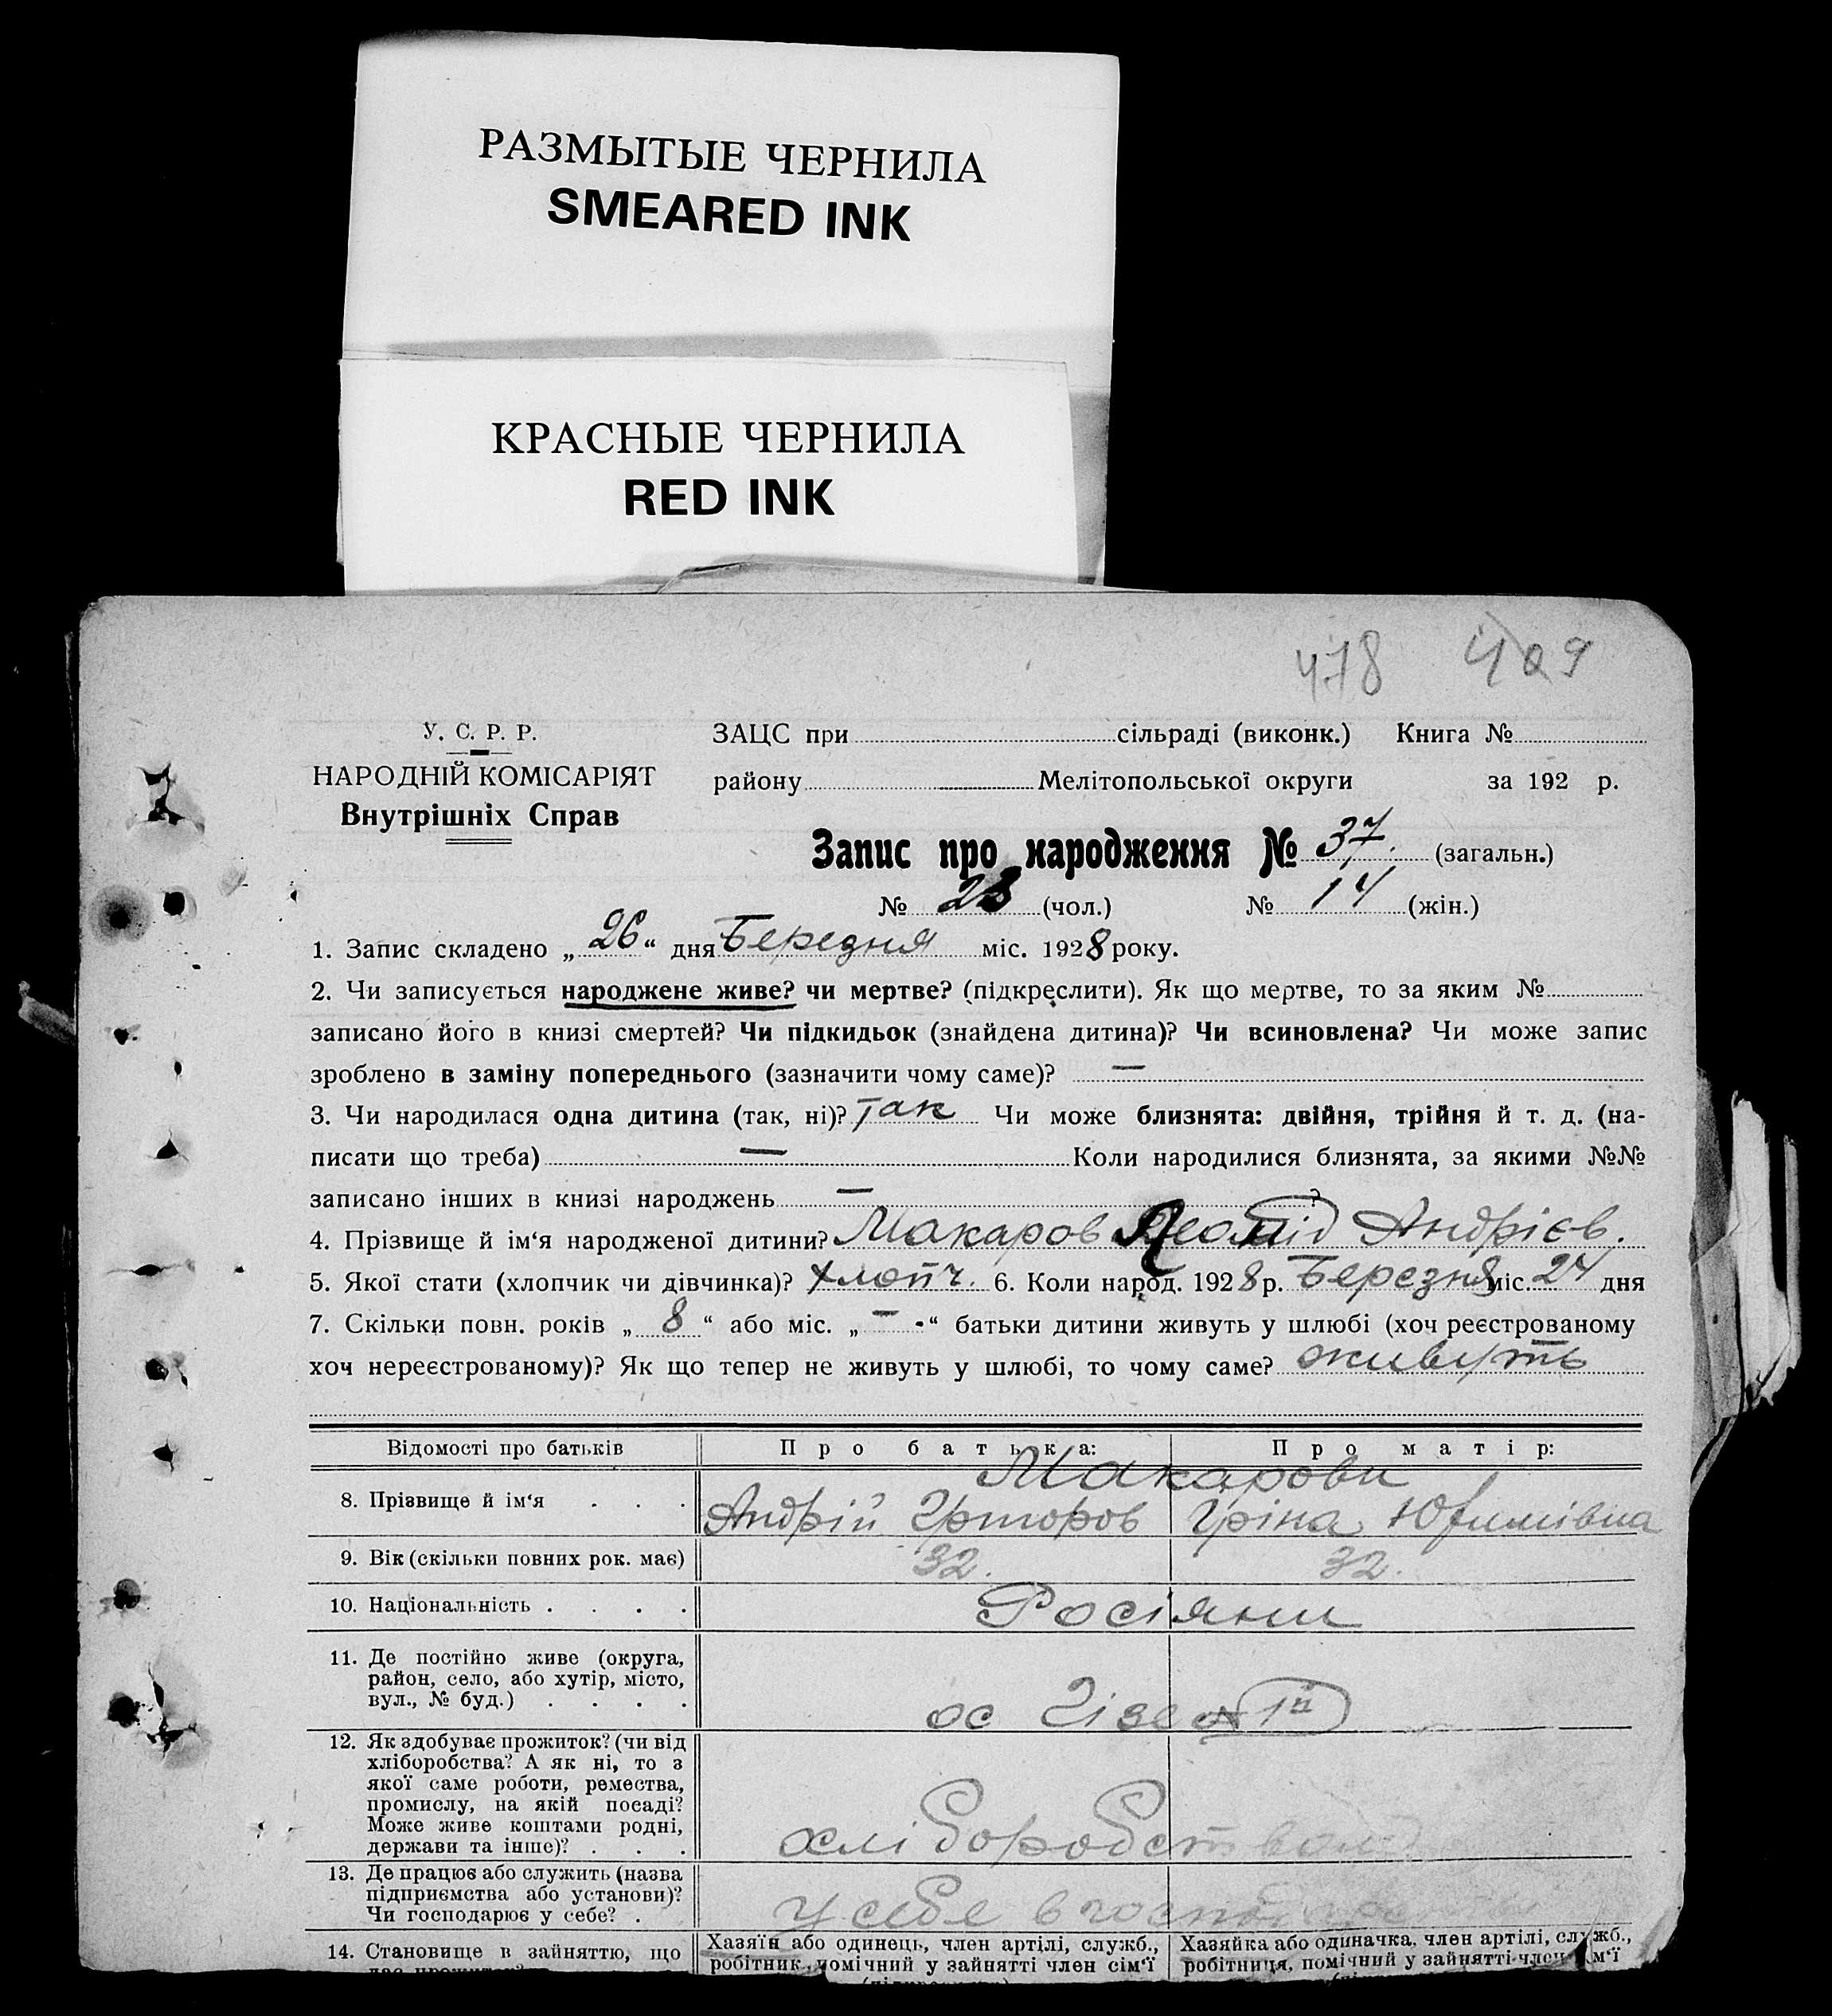 РАЗМЫТЫЕ ЧЕРНИЛА
SMEARED INK
КРАСНЫЕ ЧЕРНИЛА
RED INK
478 409
У. С. Р. Р.
НАРОДНІЙ КОМІСАРІЯТ
Внутрішніх Справ
ЗАЦС при сільраді (виконк.) Книга №
району Мелітопольської округи за 192 р.
Запис про народження № 37. (загальн.)
№ 23 (чол.) № 14 (жін.)
1. Запис складено „26“ дня Березня міс. 1928 року.
2. Чи записується народжене живе? чи мертве? (підкреслити). Як що мертве, то за яким №
записано його в книзі смертей? Чи підкидьок (знайдена дитина)? Чи всиновлена? Чи може запис
зроблено в заміну попереднього (зазначити чому саме)? —
3. Чи народилася одна дитина (так, ні)? Так Чи може близнята: двійня, трійня й т. д. (на-
писати що треба) — Коли народилися близнята, за якими №№
записано інших в книзі народжень — ?
4. Прізвище й ім‘я народженої дитини? Макаров Леонід Андрієв.
5. Якої стати (хлопчик чи дівчинка)? хлопч. 6. Коли народ. 1928 р. Березня міс. 24 дня
7. Скільки повн. років „8“ або міс. „—“ батьки дитини живуть у шлюбі (хоч реєстрованому
хоч нереєстрованому)? Як що тепер не живуть у шлюбі, то чому саме? живуть
Відомості про батьків Про батька: Про матір:
Макарови
8. Прізвище й ім‘я . . . Андрій Юхимівна
9. Вік (скільки повних рок. має) 32. 32.
10. Національність . . . . Росіяни
11. Де постійно живе (округа,
район, село, або хутір, місто,
вул., № буд.) . . . .
ос
12. Як здобуває прожиток? (чи від
хліборобства? А як ні, то з
якої саме роботи, ремества,
промислу, на якій посаді?
Може живе коштами родні,
держави та інше)? . . .
хліборобством
13. Де працює або служить (назва
підприємства або установи)?
Чи господарює у себе? .
у себе в
14. Становище в зайняттю, що
Хазяїн або одинець, член артілі, служб.,
робітник, помічний у зайнятті член сім‘ї
Хазяйка або одиначка, член артілі, служб.,
робітниця, помічний у зайнятті член сім‘ї